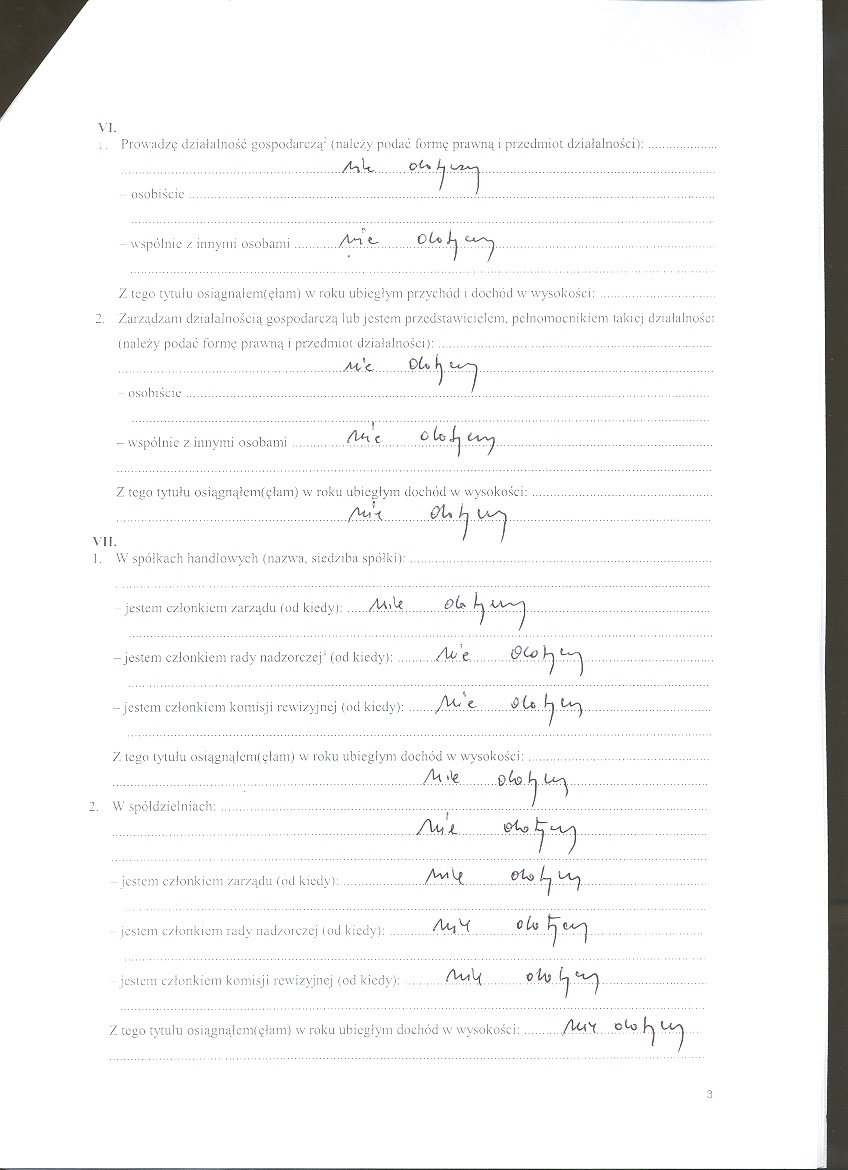 VI.
1. Prowadzę działalność gospodarczą² (należy podać formę prawną i przedmiot działalności): ....................
nie dotyczy
– osobiście ....................
– wspólnie z innymi osobami .......... nie dotyczy ....................
Z tego tytułu osiągnąłem(ęłam) w roku ubiegłym przychód i dochód w wysokości: ....................
2. Zarządzam działalnością gospodarczą lub jestem przedstawicielem, pełnomocnikiem takiej działalności
(należy podać formę prawną i przedmiot działalności): ....................
nie dotyczy
– osobiście ....................
– wspólnie z innymi osobami .......... nie dotyczy ....................
Z tego tytułu osiągnąłem(ęłam) w roku ubiegłym dochód w wysokości: ....................
nie dotyczy
VII.
1. W spółkach handlowych (nazwa, siedziba spółki): ....................
– jestem członkiem zarządu (od kiedy): ..... nie dotyczy ....................
– jestem członkiem rady nadzorczej³ (od kiedy): ........ nie dotyczy ....................
– jestem członkiem komisji rewizyjnej (od kiedy): ...... nie dotyczy ....................
Z tego tytułu osiągnąłem(ęłam) w roku ubiegłym dochód w wysokości: ....................
nie dotyczy
2. W spółdzielniach: ....................
nie dotyczy
– jestem członkiem zarządu (od kiedy): .......... nie dotyczy ....................
– jestem członkiem rady nadzorczej (od kiedy): .......... nie dotyczy ....................
– jestem członkiem komisji rewizyjnej (od kiedy): .......... nie dotyczy ....................
Z tego tytułu osiągnąłem(ęłam) w roku ubiegłym dochód w wysokości: .......... nie dotyczy ....
3